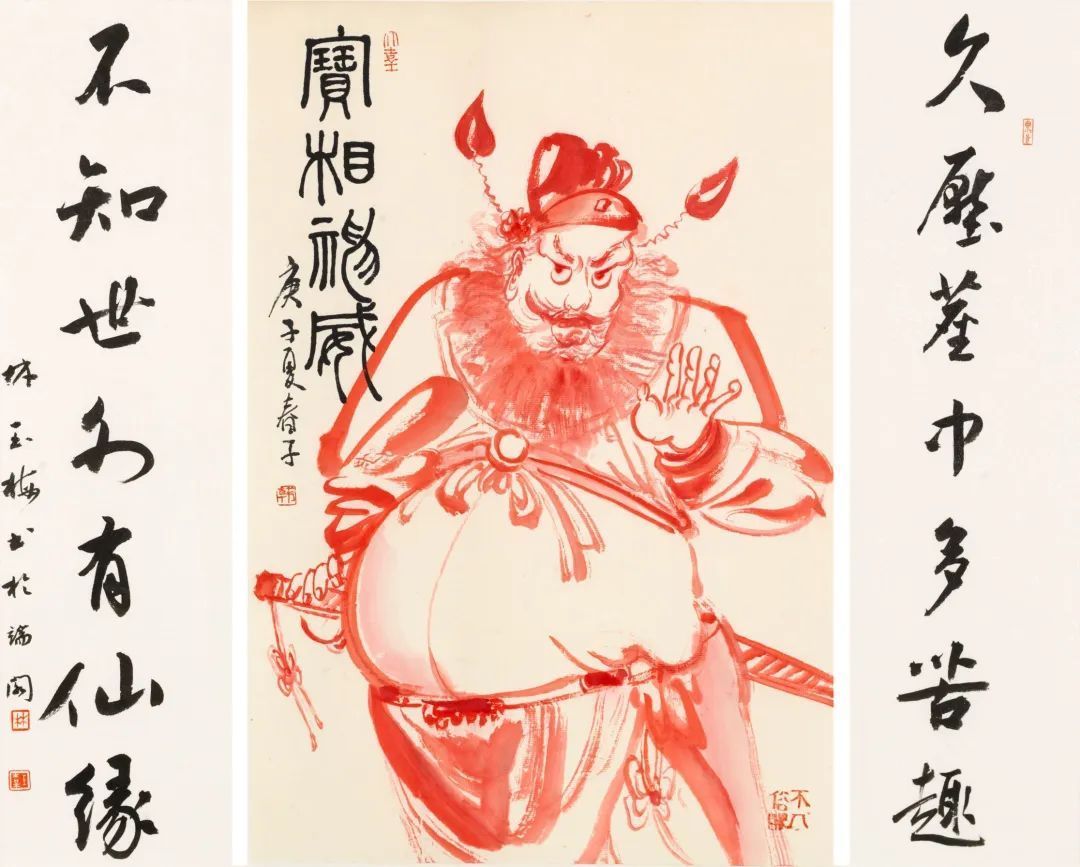 久壓塵中多苦趣
寶相禓威
庚子夏春子
不知世外有仙緣
林玉梅书於端阁